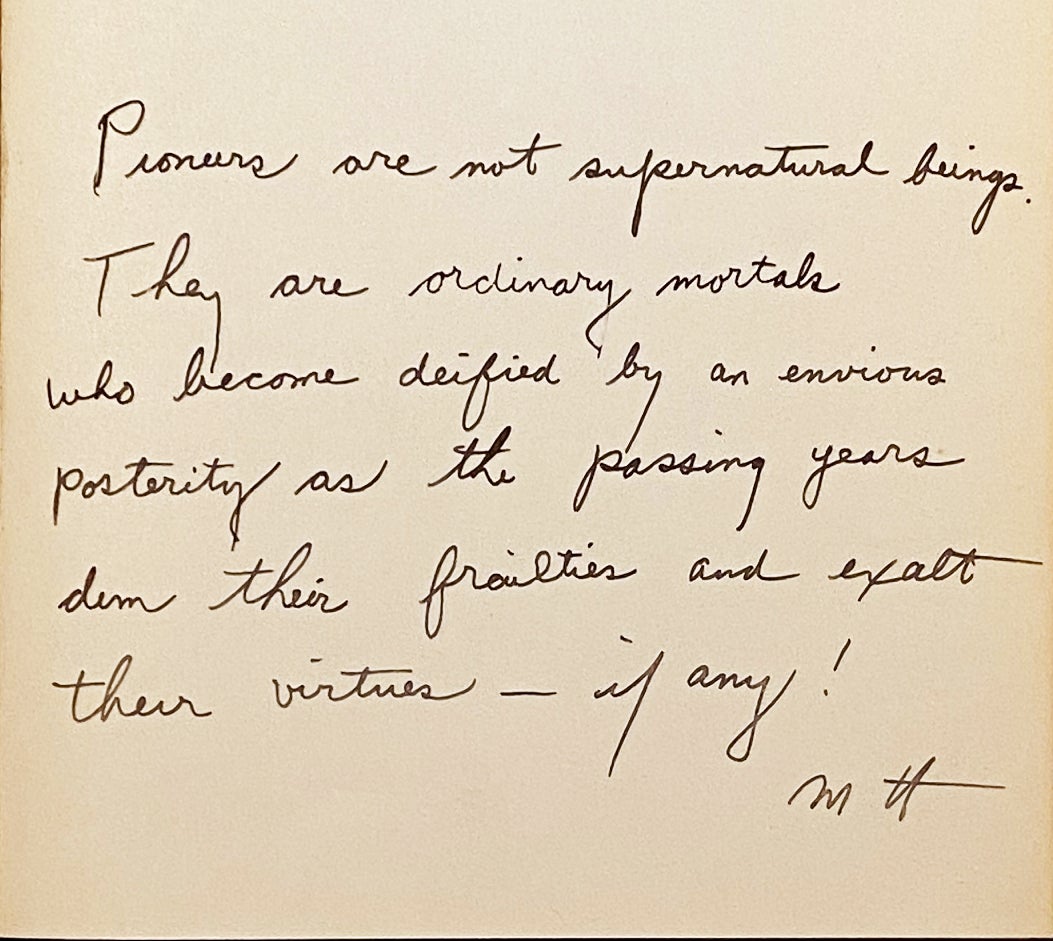 Pioneers are not supernatural beings.
They are ordinary mortals
who become deified by an envious
posterity as the passing years
dim their frailties and exalt
their virtues — if any!
M H